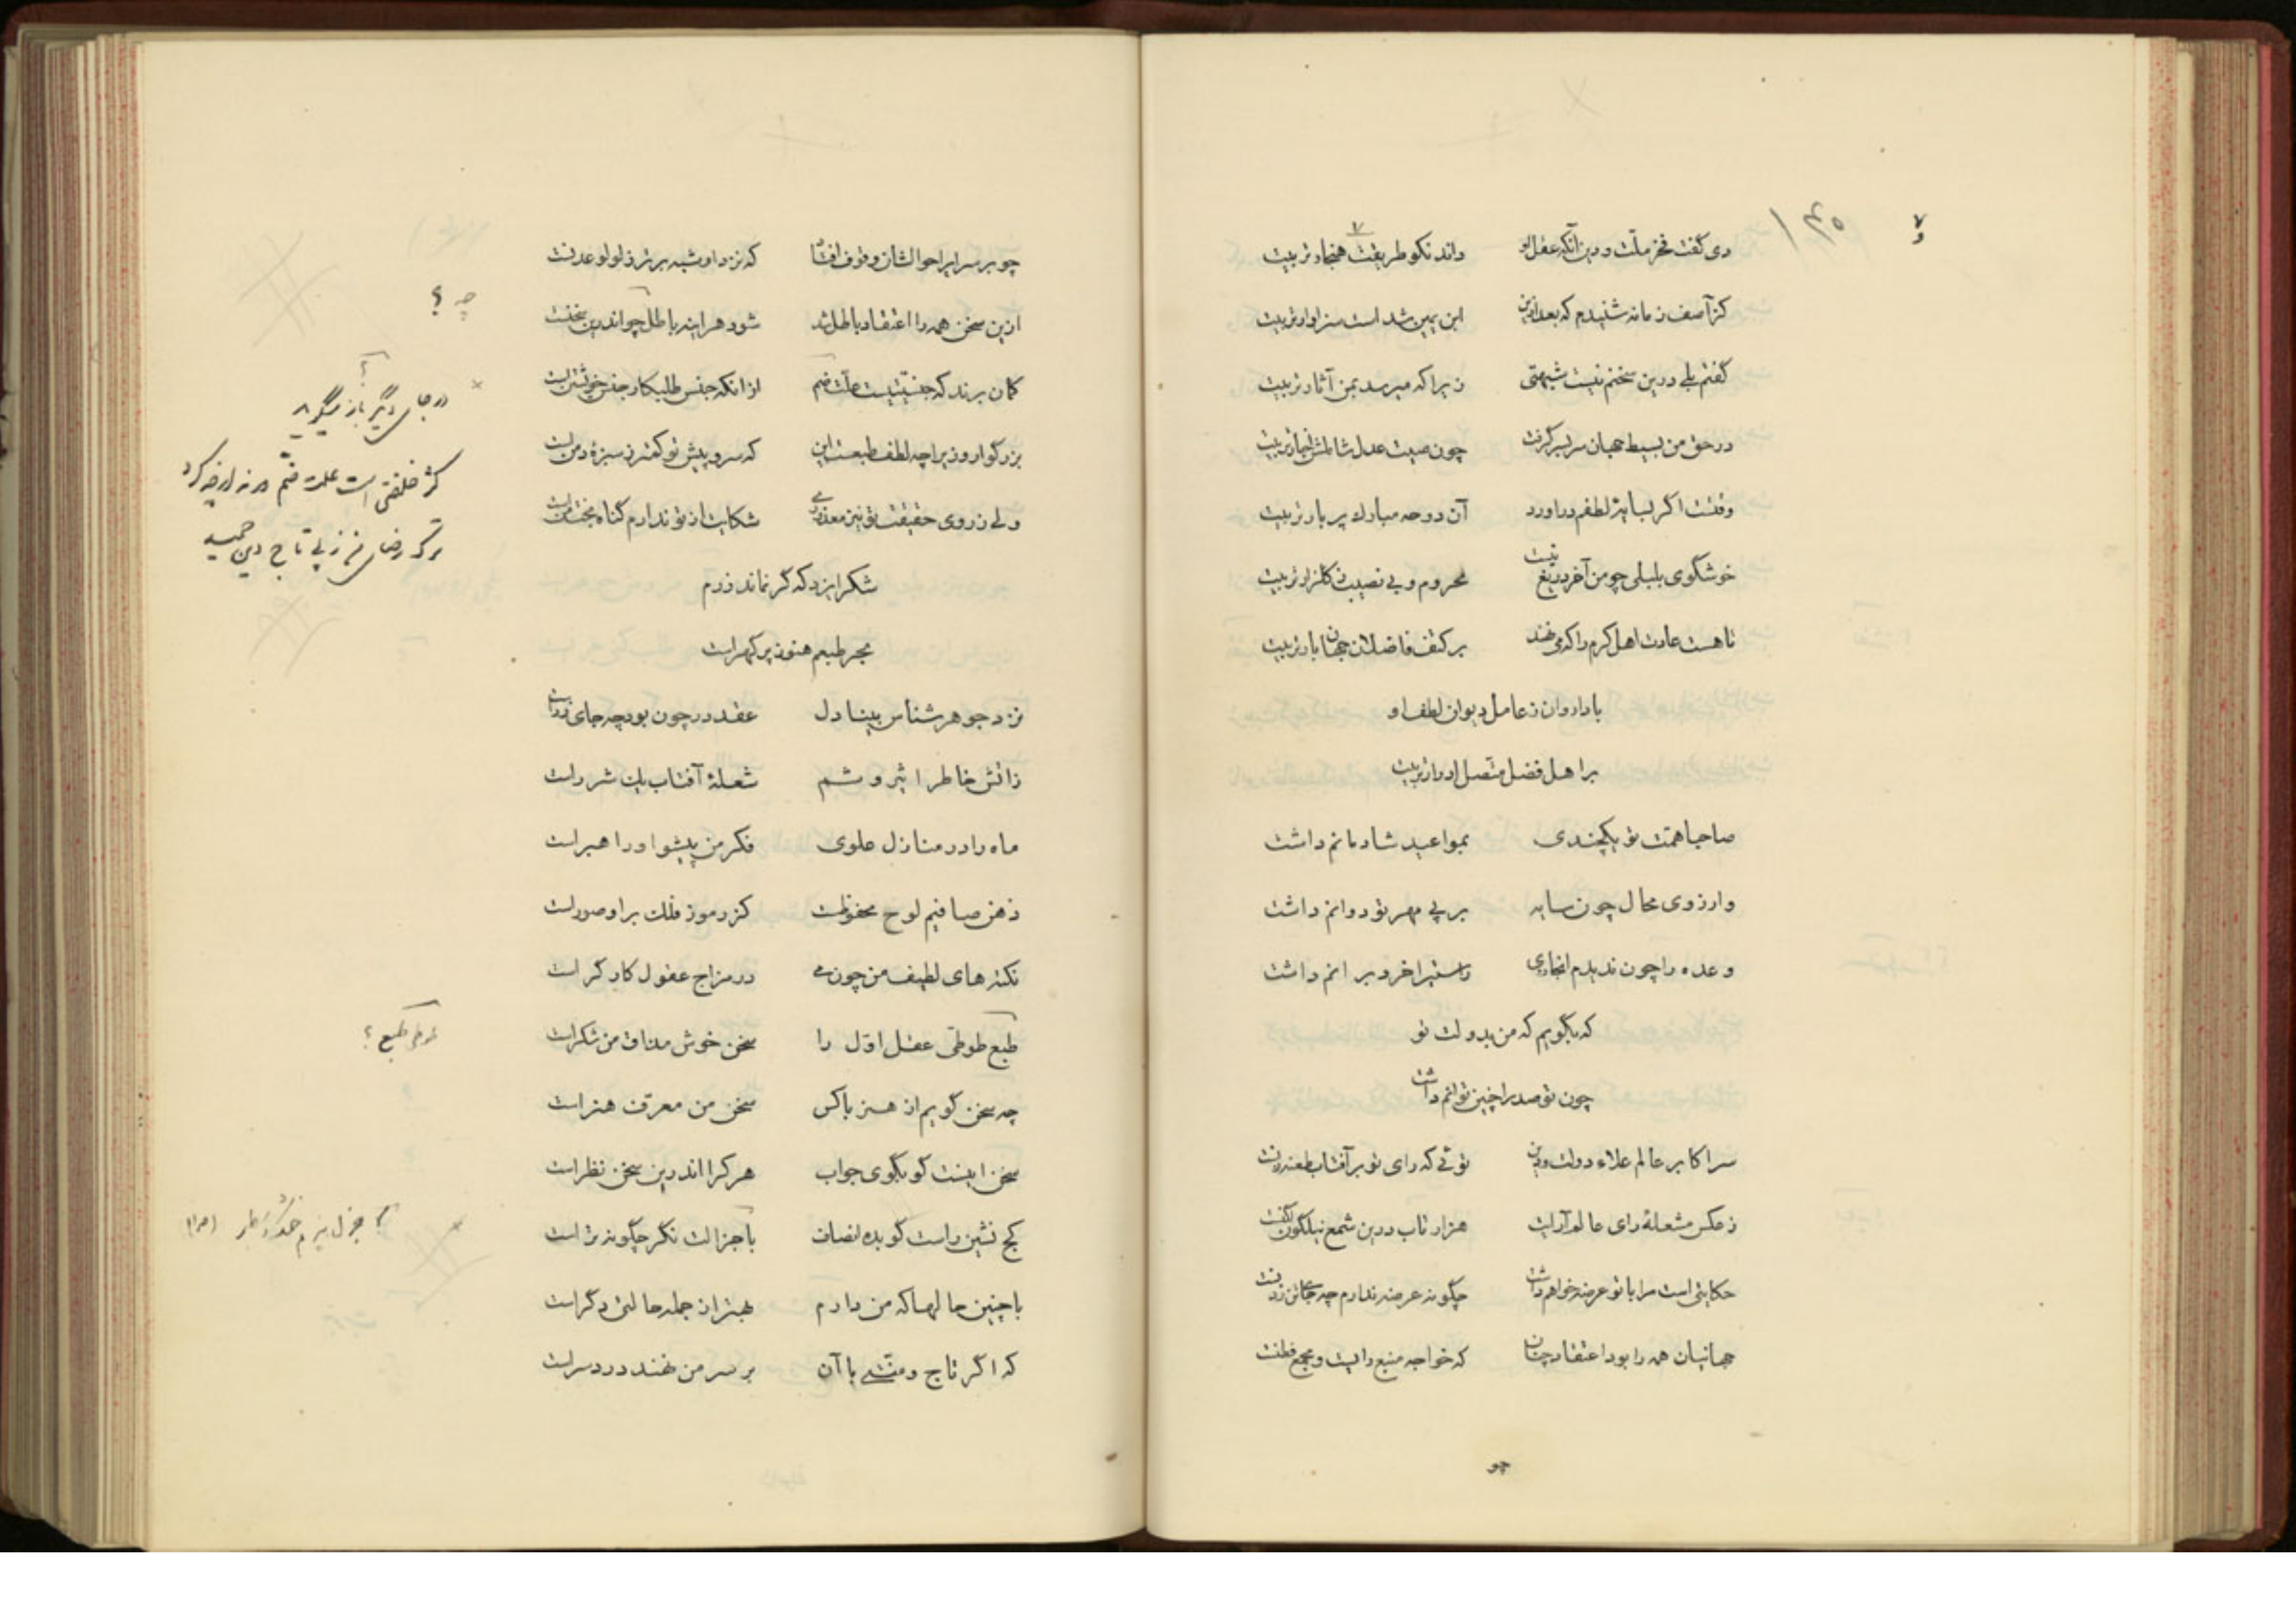 دی گفت فخر ملت و دین آنکه عقل او داند نکو طریقت هنجار تربیت
کز آصف زمانه شنیدم که بعد ازین ابن یمین شد است سزاوار تربیت
گفتم بلی درین سخنم نیست شبهتی زیرا که میرسد بمن آثار تربیت
در حق من بسیط جهان سر بسر گرفت چون صیت عدل شاملش
وقتست اگر بسایه لطفم در آورد آن دوحه مبارک پر بار تربیت
خوشگوی بلبلی چو من آخر دریغ نیست محروم و بی نصیب ز گلزار تربیت
تا هست عادت اهل کرم را که می نهند بر کتف فاضلان جهان بار تربیت
بادا روان ز عامل دیوان لطف او
بر اهل فضل متصل ادرار تربیت
صاحبا همت تو یکچندی بمواعید شادمانم داشت
وارزوی محال چون سایه بر پی مهر تو دوانم داشت
وعده را چون ندیدم انجازی راستیرا خرد بر انم داشت
که بگویم که من بدولت تو
چون تو صد را چنین توانم داشت
سر اکابر عالم علاء دولت و دین توئی که رای تو بر آفتاب طعنه زنست
ز عکس مشعله رای عالم آرایت هزار تاب درین شمع نیلگون لگنست
حکایتی است مرا با تو عرضه خواهم داشت چگونه عرضه ندارم چه جای تن زدنست
جهانیان همه را بود اعتقاد چنان که خواجه منبع رایت و مجمع فطنت
چو
چو بر سرایر احوالشان وقوف افتاد که نزد او شبه برتر ز لولو عدنست
ازین سخن همه را اعتقاد باطل شد شود هر اینه باطل چو اندرین سخنست
چه ؟
گمان برند که جنسیّتست علّت ضم از انکه جنس طلبکار جنس خویشتن است
در جای دیگر باز میگوید
بزرگوار وزیرا چه لطف طبعست این که سرو پیش تو کمتر ز سبزه دمن است
ولی ز روی حقیقت تو نیز معذوری شکایت از تو ندارم گناه بخت من است
شکر ایزد که گر نماند زرم
بحر طبعم هنوز پر گهر است
نزد جوهر شناس بینا دل عقد در چون بود چه جای زر است
زاتش خاطر اثیر وشم شعله آفتاب یک شرر است
ماه را در منازل علوی فکر من پیشوا و راهبر است
ذهن صافیم لوح محفوظست کز رموز فلک بر او صور است
نکته های لطیف من چون می در مزاج عقول کارگر است
طبع طوطی عقل اول را سخن خوش مذاق من شکر است
طوطی طبع ؟
چه سخن گویم از هنر با کس سخن من معرف هنر است
سخن اینست گو بگوی جواب هر کرا اندرین سخن نظر است
کج نشین راست گو بده انصاف با جزالت نگر چگونه تر است
با چنین حالها که من دارم بهتر از جمله حالتی دگر است
که اگر تاج و منتی با آن بر سر من نهند درد سر است